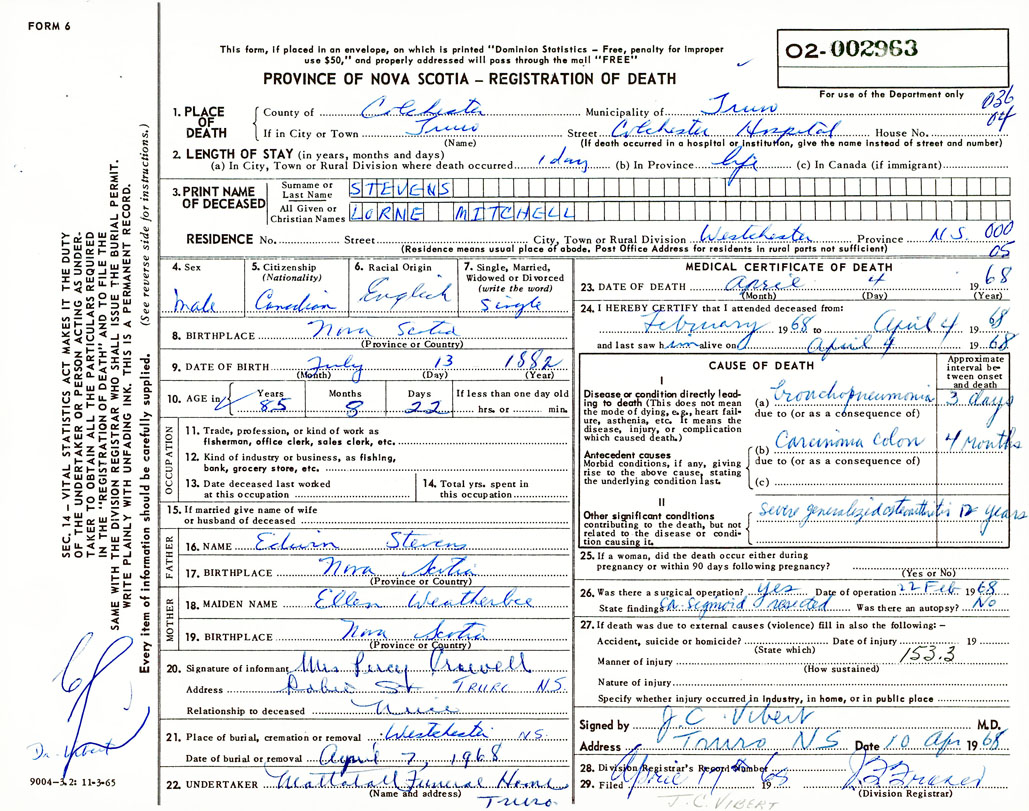 FORM 6
This form, if placed in an envelope, on which is printed "Dominion Statistics – Free, penalty for improper
use $50," and properly addressed will pass through the mail "FREE"
PROVINCE OF NOVA SCOTIA – REGISTRATION OF DEATH
O2-002963
For use of the Department only
036
04
1. PLACE OF DEATH
County of Colchester Municipality of Truro
If in City or Town Truro Street Colchester Hospital House No.
(Name) (If death occurred in a hospital or institution, give the name instead of street and number)
2. LENGTH OF STAY (in years, months and days)
(a) In City, Town or Rural Division where death occurred 1 day (b) In Province life (c) In Canada (if immigrant)
3. PRINT NAME OF DECEASED
Surname or Last Name STEVENS
All Given or Christian Names LORNE MITCHELL
RESIDENCE No. Street City, Town or Rural Division Westchester Province N.S. 000
(Residence means usual place of abode, Post Office Address for residents in rural parts not sufficient) 05
4. Sex
male
5. Citizenship
(Nationality)
Canadian
6. Racial Origin
English
7. Single, Married,
Widowed or Divorced
(write the word)
Single
8. BIRTHPLACE Nova Scotia
(Province or Country)
9. DATE OF BIRTH July 13 1882
(Month) (Day) (Year)
10. AGE in Years Months Days If less than one day old
85 8 22 hrs. or min.
OCCUPATION
11. Trade, profession, or kind of work as
fisherman, office clerk, sales clerk, etc.
12. Kind of industry or business, as fishing,
bank, grocery store, etc.
13. Date deceased last worked
at this occupation
14. Total yrs. spent in
this occupation
15. If married give name of wife
or husband of deceased
FATHER
16. NAME Edwin Stevens
17. BIRTHPLACE Nova Scotia
(Province or Country)
MOTHER
18. MAIDEN NAME Ellen Weatherbee
19. BIRTHPLACE Nova Scotia
(Province or Country)
20. Signature of informant Mrs Percy Crowell
Address Robie St TRURO N.S.
Relationship to deceased Niece
21. Place of burial, cremation or removal Westchester N.S.
Date of burial or removal April 7, 1968
22. UNDERTAKER Mattatall Funeral Home
(Name and address) Truro
MEDICAL CERTIFICATE OF DEATH
23. DATE OF DEATH April 4 1968
(Month) (Day) (Year)
24. I HEREBY CERTIFY that I attended deceased from:
February 1968 to April 4 1968
and last saw him alive on April 4 1968
CAUSE OF DEATH
Approximate
interval be-
tween onset
and death
I
Disease or condition directly lead-
ing to death (This does not mean
the mode of dying, e.g., heart fail-
ure, asthenia, etc. It means the
disease, injury, or complication
which caused death.)
(a) Bronchopneumonia 3 days
due to (or as a consequence of)
Antecedent causes
Morbid conditions, if any, giving
rise to the above cause, stating
the underlying condition last.
(b) Carcinoma colon 4 months
due to (or as a consequence of)
(c)
II
Other significant conditions
contributing to the death, but not
related to the disease or condi-
tion causing it.
Severe generalized osteoarthritis 12 years
25. If a woman, did the death occur either during
pregnancy or within 90 days following pregnancy?
(Yes or No)
26. Was there a surgical operation? Yes Date of operation 22 Feb 1968
State findings Ca Sigmoid resected Was there an autopsy? No
27. If death was due to external causes (violence) fill in also the following: –
Accident, suicide or homicide? Date of injury 19
(State which) 153.3
Manner of injury
(How sustained)
Nature of injury
Specify whether injury occurred in industry, in home, or in public place
Signed by J.C. Vibert M.D.
Address Truro N S Date 10 Apr 1968
28. Division Registrar's Record Number
29. Filed April 1968
(Division Registrar)
J.C. VIBERT
SEC. 14 – VITAL STATISTICS ACT MAKES IT THE DUTY
OF THE UNDERTAKER OR PERSON ACTING AS UNDER-
TAKER TO OBTAIN ALL THE PARTICULARS REQUIRED
IN THE "REGISTRATION OF DEATH" AND TO FILE THE
SAME WITH THE DIVISION REGISTRAR WHO SHALL ISSUE THE BURIAL PERMIT.
WRITE PLAINLY WITH UNFADING INK. THIS IS A PERMANENT RECORD.
Every item of information should be carefully supplied. (See reverse side for instructions.)
Dr. Vibert
9004-3.2: 11-3-65